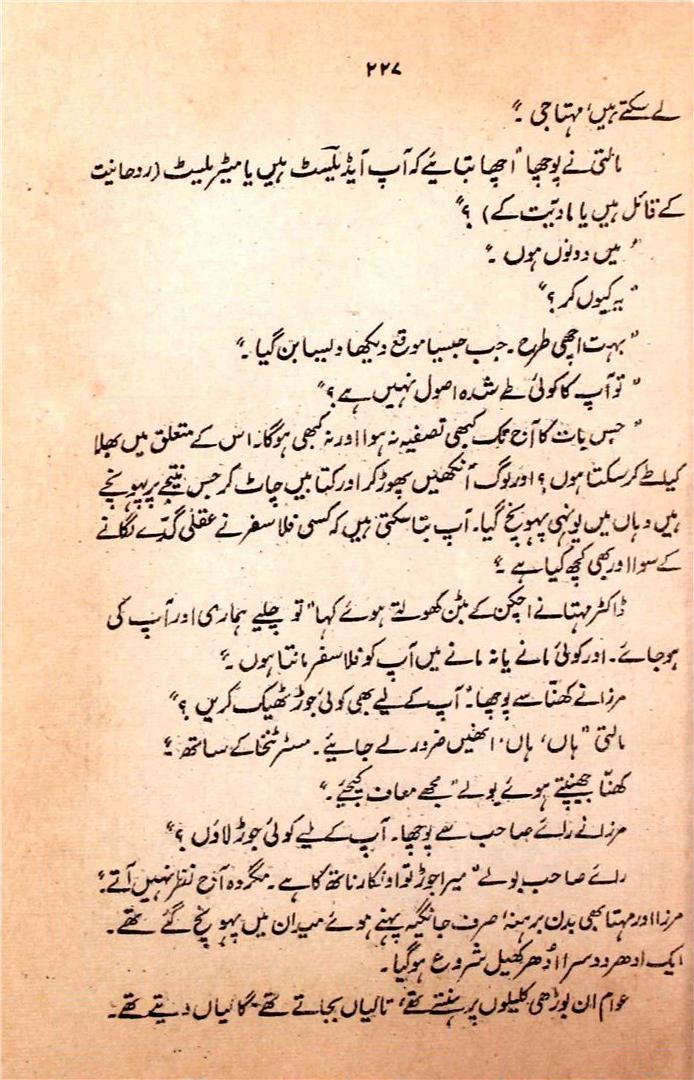 ۲۲۷
لے سکتے ہیں، مہتا جی ۔"
مالتی نے پوچھا "اچھا بتائیے کہ آپ آیڈیلیسٹ ہیں یا میٹریلیسٹ (روحانیت
کے قائل ہیں یا مادیّت کے) ؟"
"میں دونوں ہوں ۔"
"یہ کیوں کر ؟"
"بہت اچھی طرح ۔ جب جیسا موقع دیکھا ویسا بن گیا ۔"
"تو آپ کا کوئی طے شدہ اصول نہیں ہے ؟"
"جس بات کا آج تک کبھی تصفیہ نہ ہوا اور نہ کبھی ہوگا۔ اس کے متعلق میں بھلا
کیا طے کر سکتا ہوں ؟ اور لوگ آنکھیں پھوڑ کر اور کتابیں چاٹ کر جس نتیجے پر پہونچے
ہیں وہاں میں یونہی پہونچ گیا۔ آپ بتا سکتی ہیں کہ کسی فلاسفر نے عقلی گدّے لگانے
کے سوا اور بھی کچھ کیا ہے ؟"
ڈاکٹر مہتا نے اچکن کے بٹن کھولتے ہوئے کہا "تو چلیے ہماری اور آپ کی
ہو جائے۔ اور کوئی مانے یا نہ مانے میں آپ کو فلاسفر مانتا ہوں ۔"
مرزا نے کھنّا سے پوچھا۔ "آپ کے لیے بھی کوئی جوڑ ٹھیک کریں ؟"
مالتی "ہاں، ہاں، انھیں ضرور لے جائیے۔ مسٹر تنخا کے ساتھ ۔"
کھنّا جھینپتے ہوئے بولے "مجھے معاف کیجئے ۔"
مرزا نے رائے صاحب سے پوچھا۔ آپ کے لیے کوئی جوڑ لاؤں ؟"
رائے صاحب بولے "میرا جوڑ تو اونکار ناتھ کا ہے۔ مگر وہ آج نظر نہیں آتے۔"
مرزا اور مہتا بھی بدن برہنہ، صرف جانگیہ پہنے ہوئے میدان میں پہونچ گئے تھے۔
ایک ادھر دوسرا اُدھر کھیل شروع ہوگیا۔
عوام ان بوڑھی کلیلوں پر ہنستے تھے، تالیاں بجاتے تھے، گالیاں دیتے تھے۔